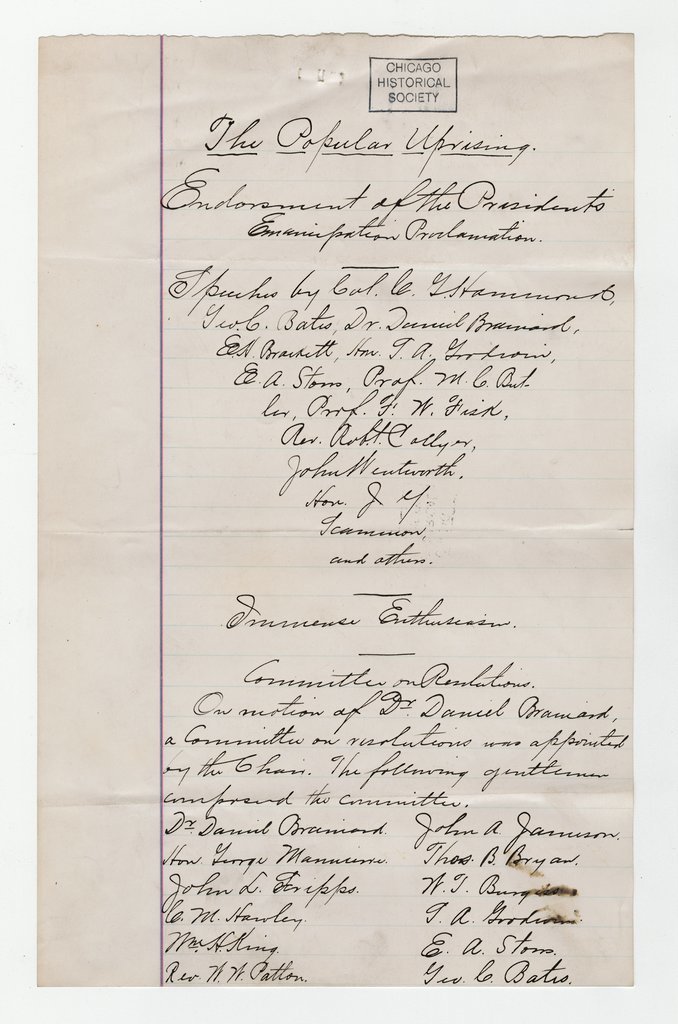 CHICAGO
HISTORICAL
SOCIETY
The Popular Uprising.
Endorsment of the Presidents
Emancipation Proclamation.
Speeches by Col. C. G. Hammond,
Geo C. Bates, Dr. Daniel Brainard,
Hon. T. A. Goodwin,
E. A. Storrs, Prof. M. C. But-
ler, Prof. F. W. Fisk,
Rev. Robt. Collyer,
John Wentworth,
Hon. J Y.
Scammon,
and others.
Immense Enthusiasm.
Committee on Resolutions.
On motion of Dr. Daniel Brainard,
a Committee on resolutions was appointed
by the Chair. The following gentlemen
composed the committee.
Dr Daniel Brainard. John A. Jameson.
Hon. George Mannierre. Thos B. Bryan.
John L. W. T. Burgess
C. M. Hawley. T. A. Goodwin.
Wm H. King. E. A. Storrs.
Rev. W. W. Patton. Geo. C. Bates.